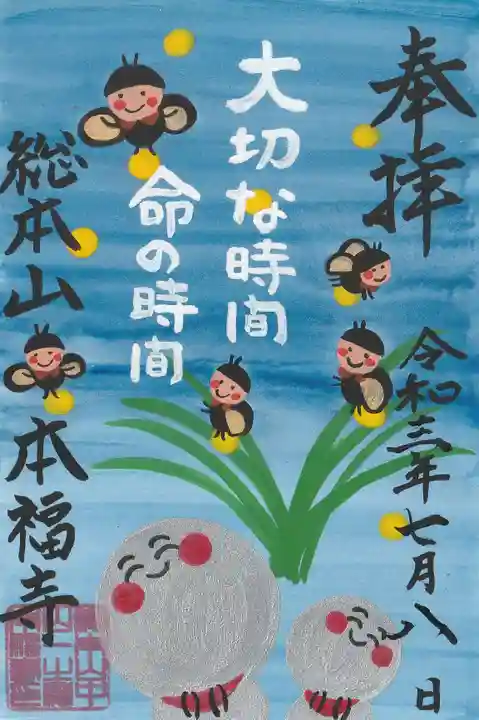 奉拝
令和三年七月八日
大切な時間
命の時間
総本山 本福寺